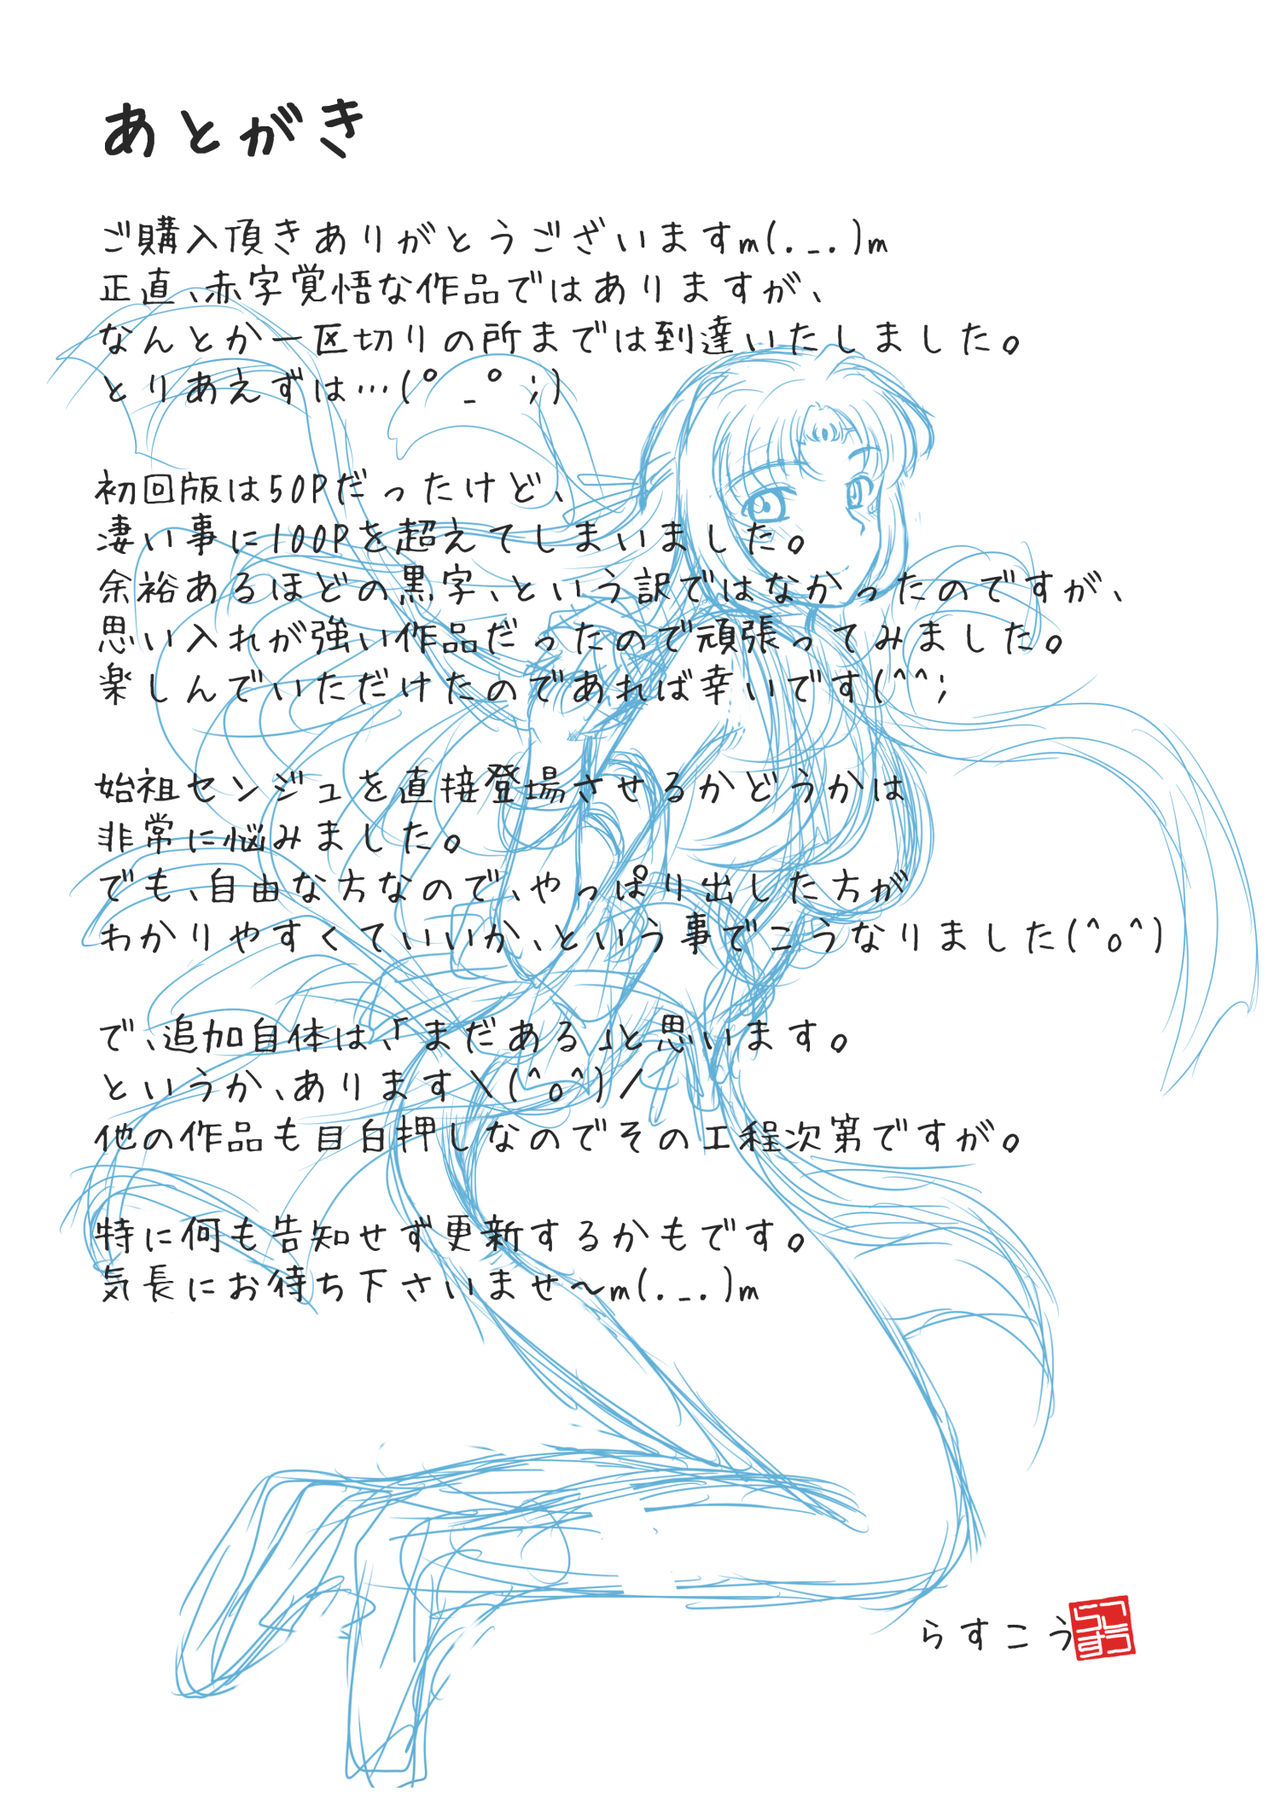 あとがき
ご購入頂きありがとうございますm(._.)m
正直、赤字覚悟な作品ではありますが、
なんとか一区切りの所までは到達いたしました。
とりあえずは…(゜_゜;)
初回版は50Pだったけど、
凄い事に100Pを超えてしまいました。
余裕あるほどの黒字、という訳ではなかったのですが、
思い入れが強い作品だったので頑張ってみました。
楽しんでいただけたのであれば幸いです(^^;
始祖センジュを直接登場させるかどうかは
非常に悩みました。
でも、自由な方なので、やっぱり出した方が
わかりやすくていいか、という事でこうなりました(^o^)
で、追加自体は、「まだある」と思います。
というか、あります\(^o^)/
他の作品も目白押しなのでその工程次第ですが。
特に何も告知せず更新するかもです。
気長にお待ち下さいませ～m(._.)m
らすこう
らすこう